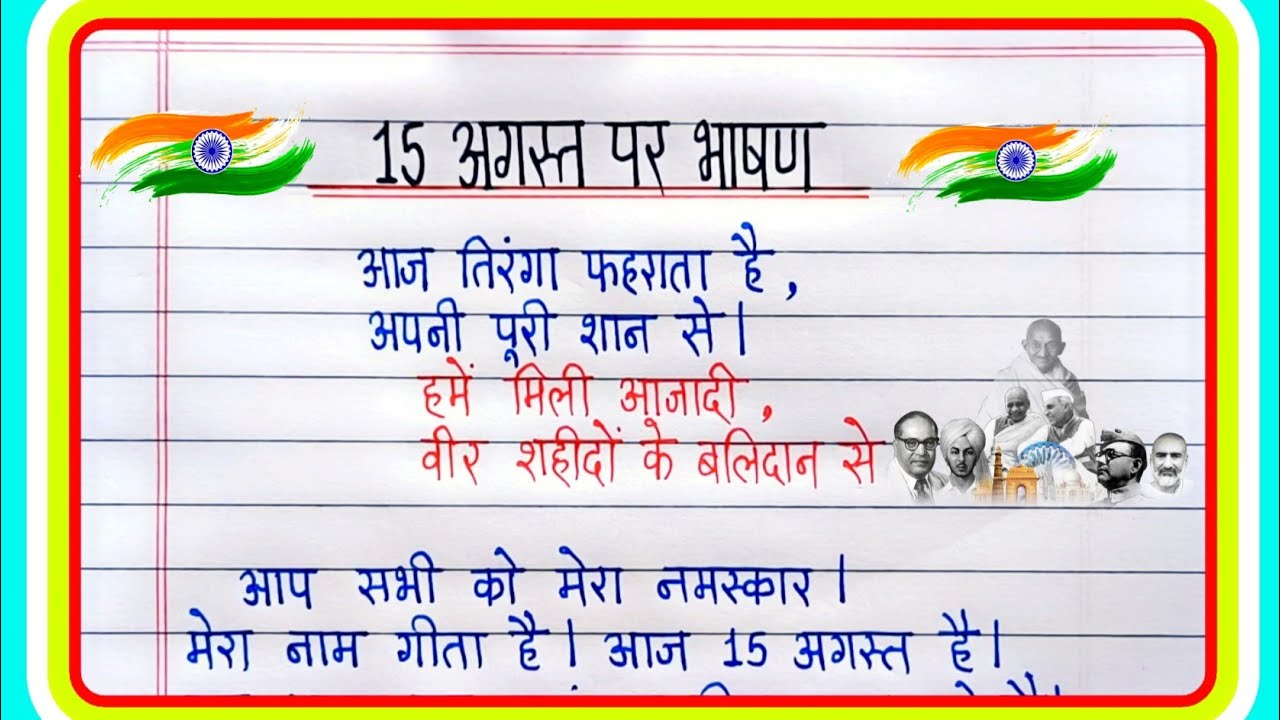 15 अगस्त पर भाषण
आज तिरंगा फहराता है,
अपनी पूरी शान से।
हमें मिली आजादी,
वीर शहीदों के बलिदान से
आप सभी को मेरा नमस्कार।
मेरा नाम गीता है। आज 15 अगस्त है।